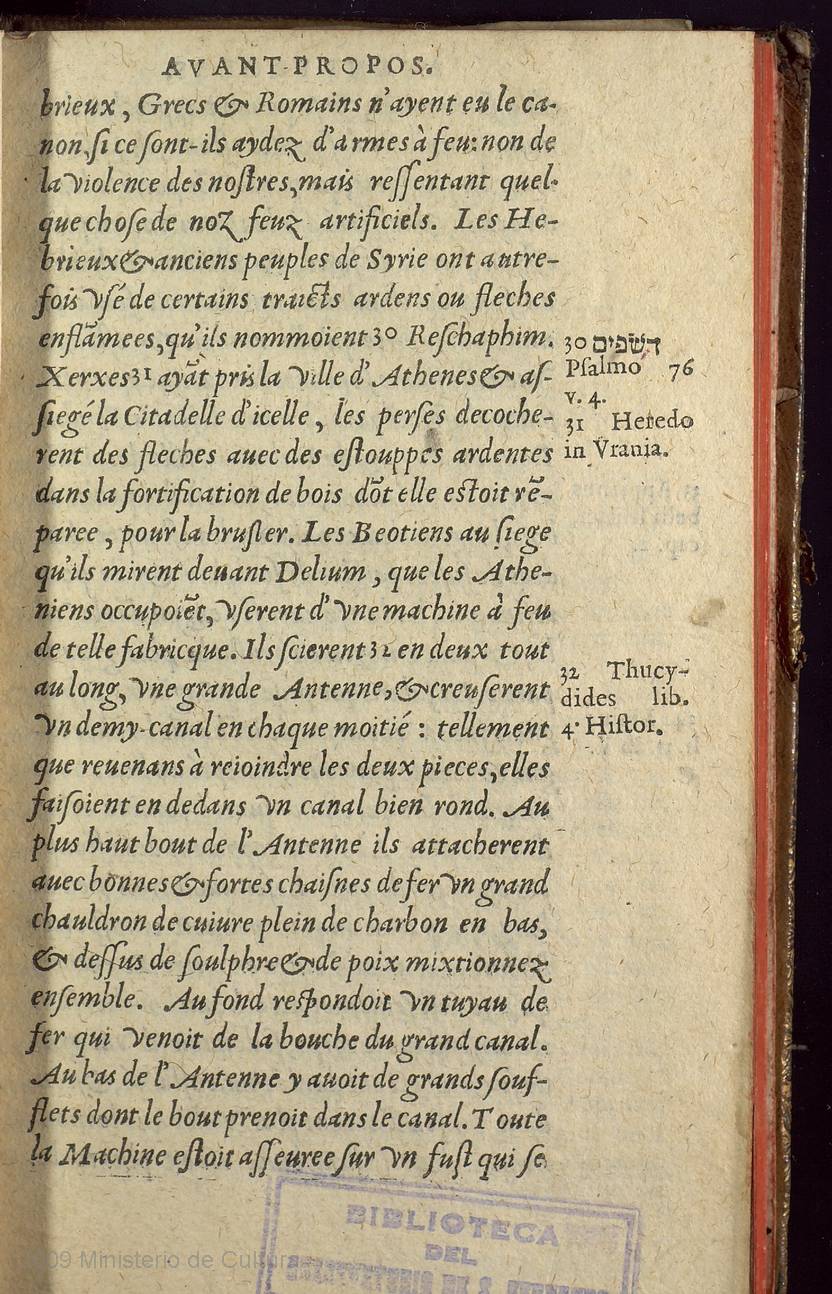 AVANT-PROPOS.
brieux, Grecs & Romains n'ayent eu le ca-
non, ſi ce ſont-ils aydez d'armes à feu: non de
la violence des noſtres, mais reſſentant quel-
que choſe de noz feuz artificiels. Les He-
brieux & anciens peuples de Syrie ont autre-
fois vſé de certains traicts ardens ou fleches
enflãmees, qu'ils nommoient 30 Reſchaphim.
Xerxes 31 ayãt pris la ville d'Athenes & aſ-
ſiegé la Citadelle d'icelle, les perſes decoche-
rent des fleches auec des eſtouppes ardentes
dans la fortification de bois dõt elle eſtoit rẽ-
paree, pour la bruſler. Les Beotiens au ſiege
qu'ils mirent deuant Delium, que les Athe-
niens occupoiẽt, vſerent d'vne machine à feu
de telle fabricque. Ils ſcierent 32 en deux tout
au long, vne grande Antenne, & creuſerent
vn demy-canal en chaque moitié : tellement
que reuenans à reioindre les deux pieces, elles
faiſoient en dedans vn canal bien rond. Au
plus haut bout de l'Antenne ils attacherent
auec bonnes & fortes chaiſnes de fer vn grand
chauldron de cuiure plein de charbon en bas,
& deſſus de ſoulphre & de poix mixtionnez
enſemble. Au fond reſpondoit vn tuyau de
fer qui venoit de la bouche du grand canal.
Au bas de l'Antenne y auoit de grands ſouf-
flets dont le bout prenoit dans le canal. Toute
la Machine eſtoit aſſeuree ſur vn fuſt qui ſe
30 רשפים
Pſalmo 76
v. 4.
31 Heredo
in Vrania.
32 Thucy-
dides lib.
4. Hiſtor.
BIBLIOTECA
DEL
09 Ministerio de Cultura